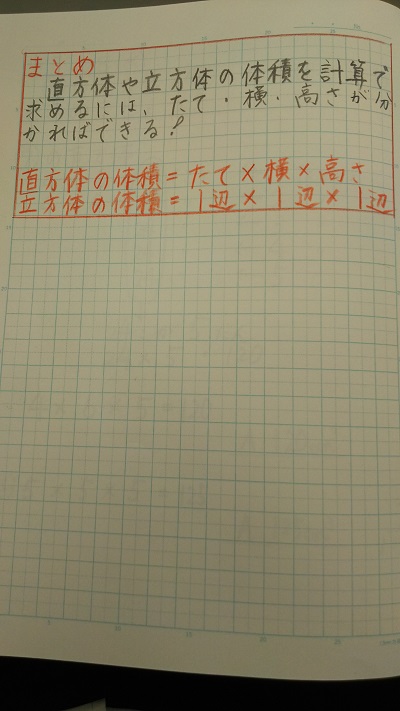 まとめ
直方体や立方体の体積を計算で
求めるには、たて・横・高さが分
かればできる!
直方体の体積=たて×横×高さ
立方体の体積=1辺×1辺×1辺